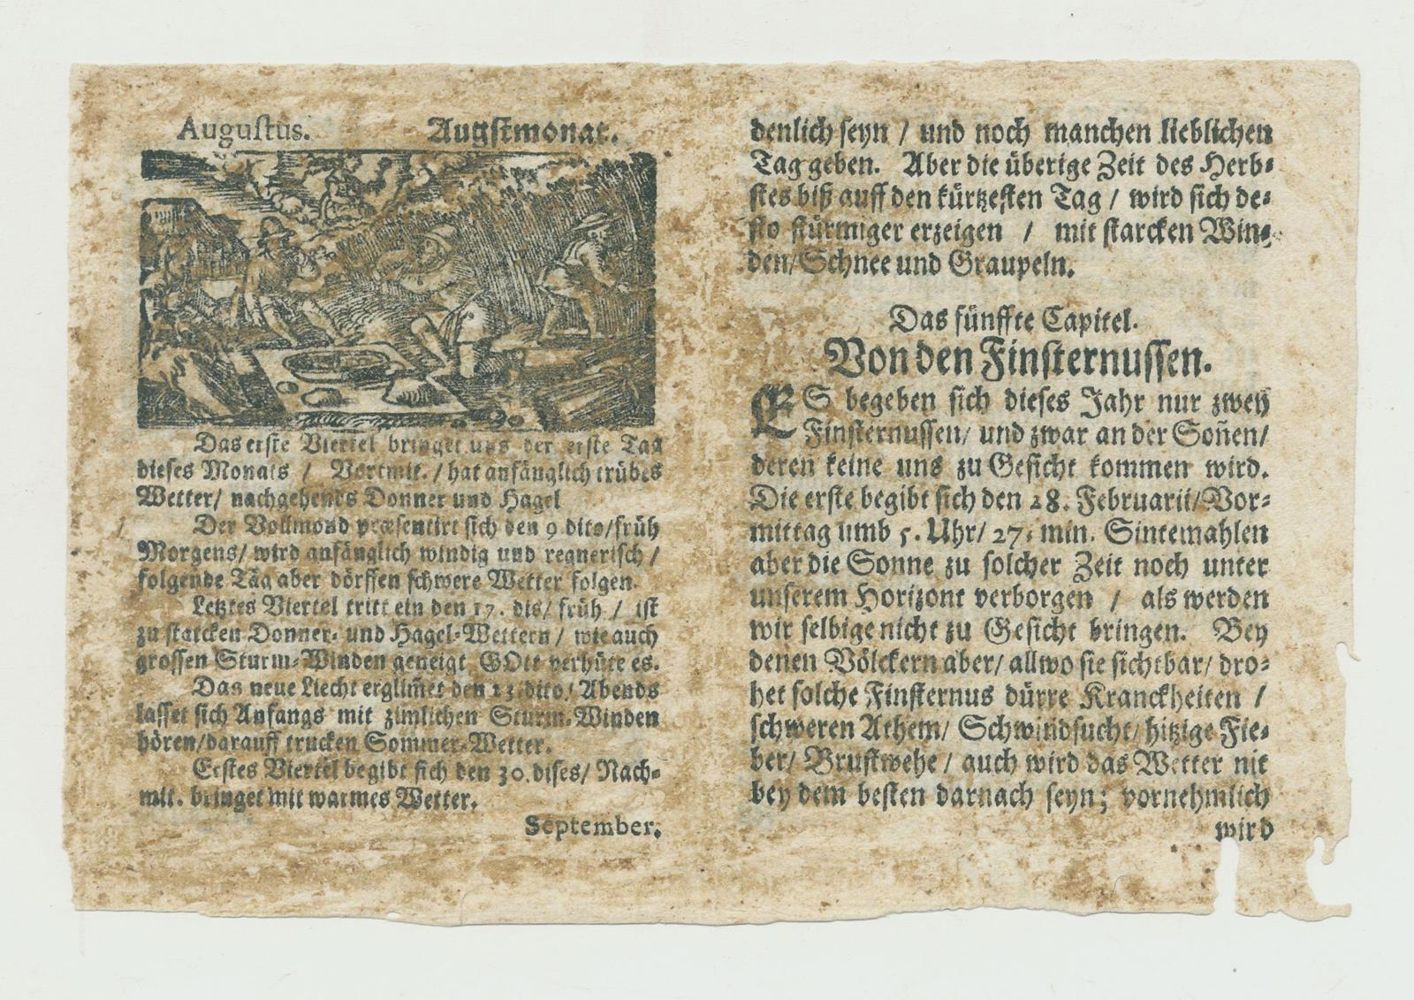 Augustus. Augstmonat.
Das erste Viertel bringet uns der erste Tag
dieses Monats / Vortmit. / hat anfänglich trübes
Wetter/ nachgehends Donner und Hagel
Der Vollmond præsentirt sich den 9 dito/früh
Morgens/ wird anfänglich windig und regnerisch /
folgende Täg aber dörffen schwere Wetter folgen.
Letztes Viertel tritt ein den 17. dis/ früh / ist
zu starcken Donner- und Hagel-Wettern / wie auch
grossen Sturm-Winden geneigt GOtt verhüte es.
Das neue Liecht erglimet den 23 dito/ Abends
lasset sich Anfangs mit zimlichen Sturm-Winden
hören/darauff trucken Sommer-Wetter.
Erstes Viertel begibt sich den 30. dises/ Nach-
mit. bringet mit warmes Wetter.
September.
denlich seyn / und noch manchen lieblichen
Tag geben. Aber die überige Zeit des Herb-
stes biß auff den kürtzesten Tag / wird sich de-
sto stürmiger erzeigen / mit starcken Win-
den/Schnee und Graupeln.
Das fünffte Capitel.
Von den Finsternussen.
ES begeben sich dieses Jahr nur zwey
Finsternussen/ und zwar an der Soñen/
deren keine uns zu Gesicht kommen wird.
Die erste begibt sich den 28. Februarii/Vor-
mittag umb 5. Uhr/ 27. min. Sintemahlen
aber die Sonne zu solcher Zeit noch unter
unserem Horizont verborgen / als werden
wir selbige nicht zu Gesicht bringen. Bey
denen Völckern aber/ allwo sie sichtbar/ dro-
het solche Finsternus dürre Kranckheiten /
schweren Athem/ Schwindsucht/ hitzige Fie-
ber/ Brustwehe / auch wird das Wetter nit
bey dem besten darnach seyn; vornehmlich
wird